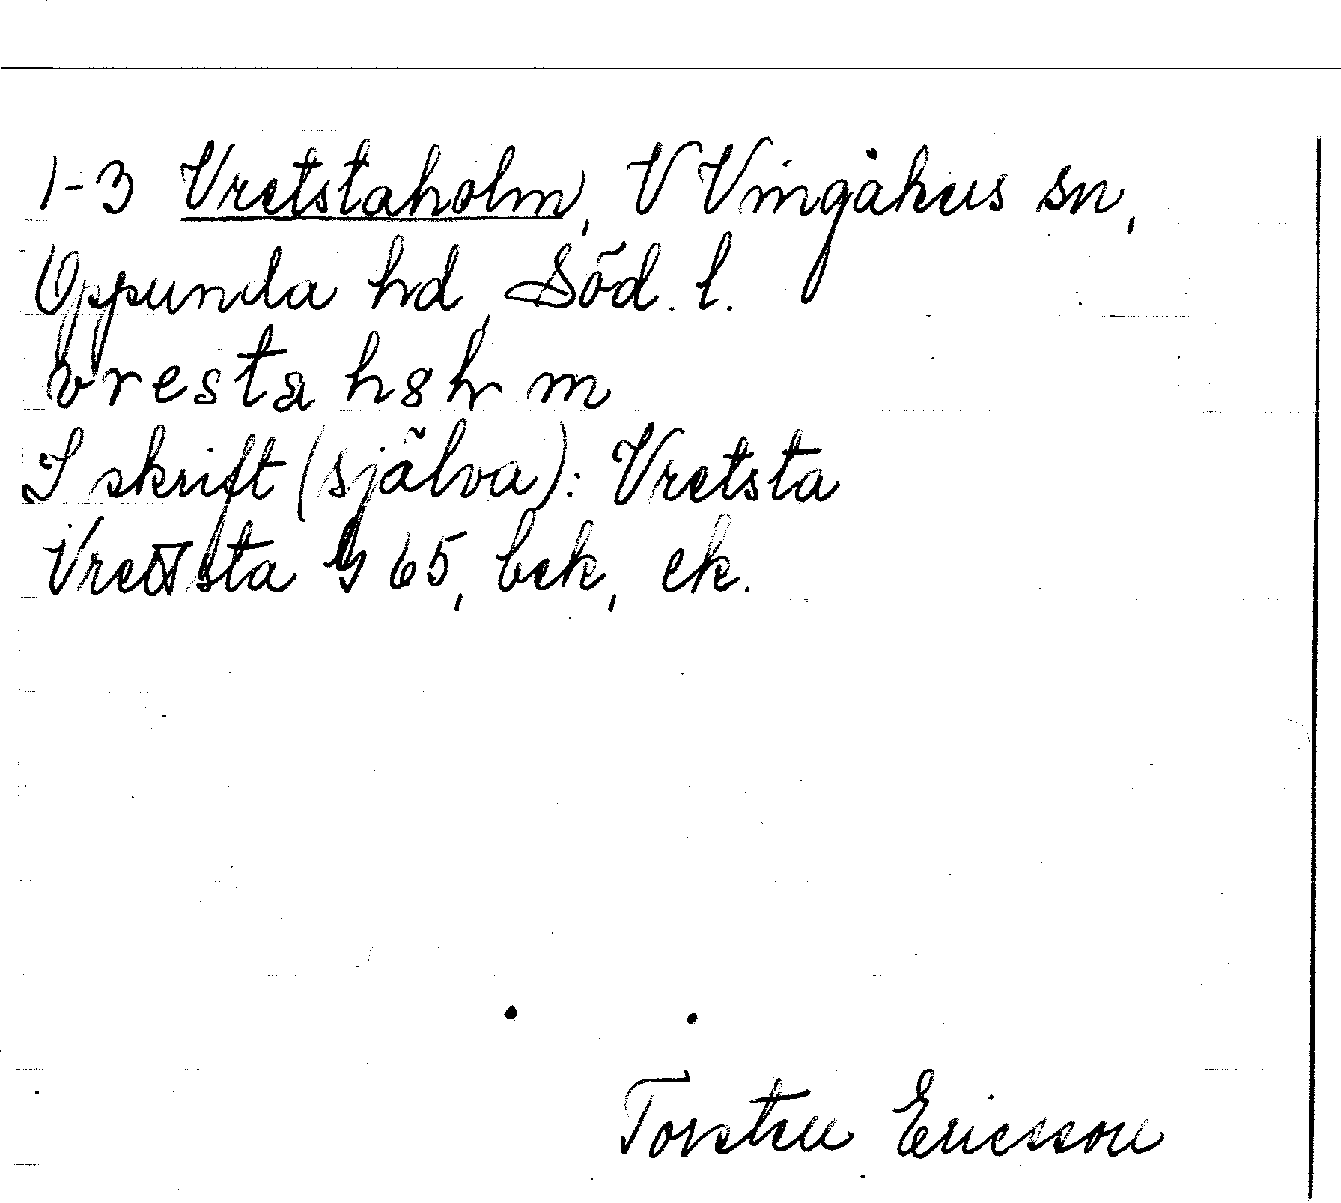 1-3 Vretstaholm, V Vingåkers sn,
Oppunda hd, Söd. l.
vresta hshr m
I skrift (själva): Vretsta
Vretsta G 65, bek, ek.
Torsten Ericsson